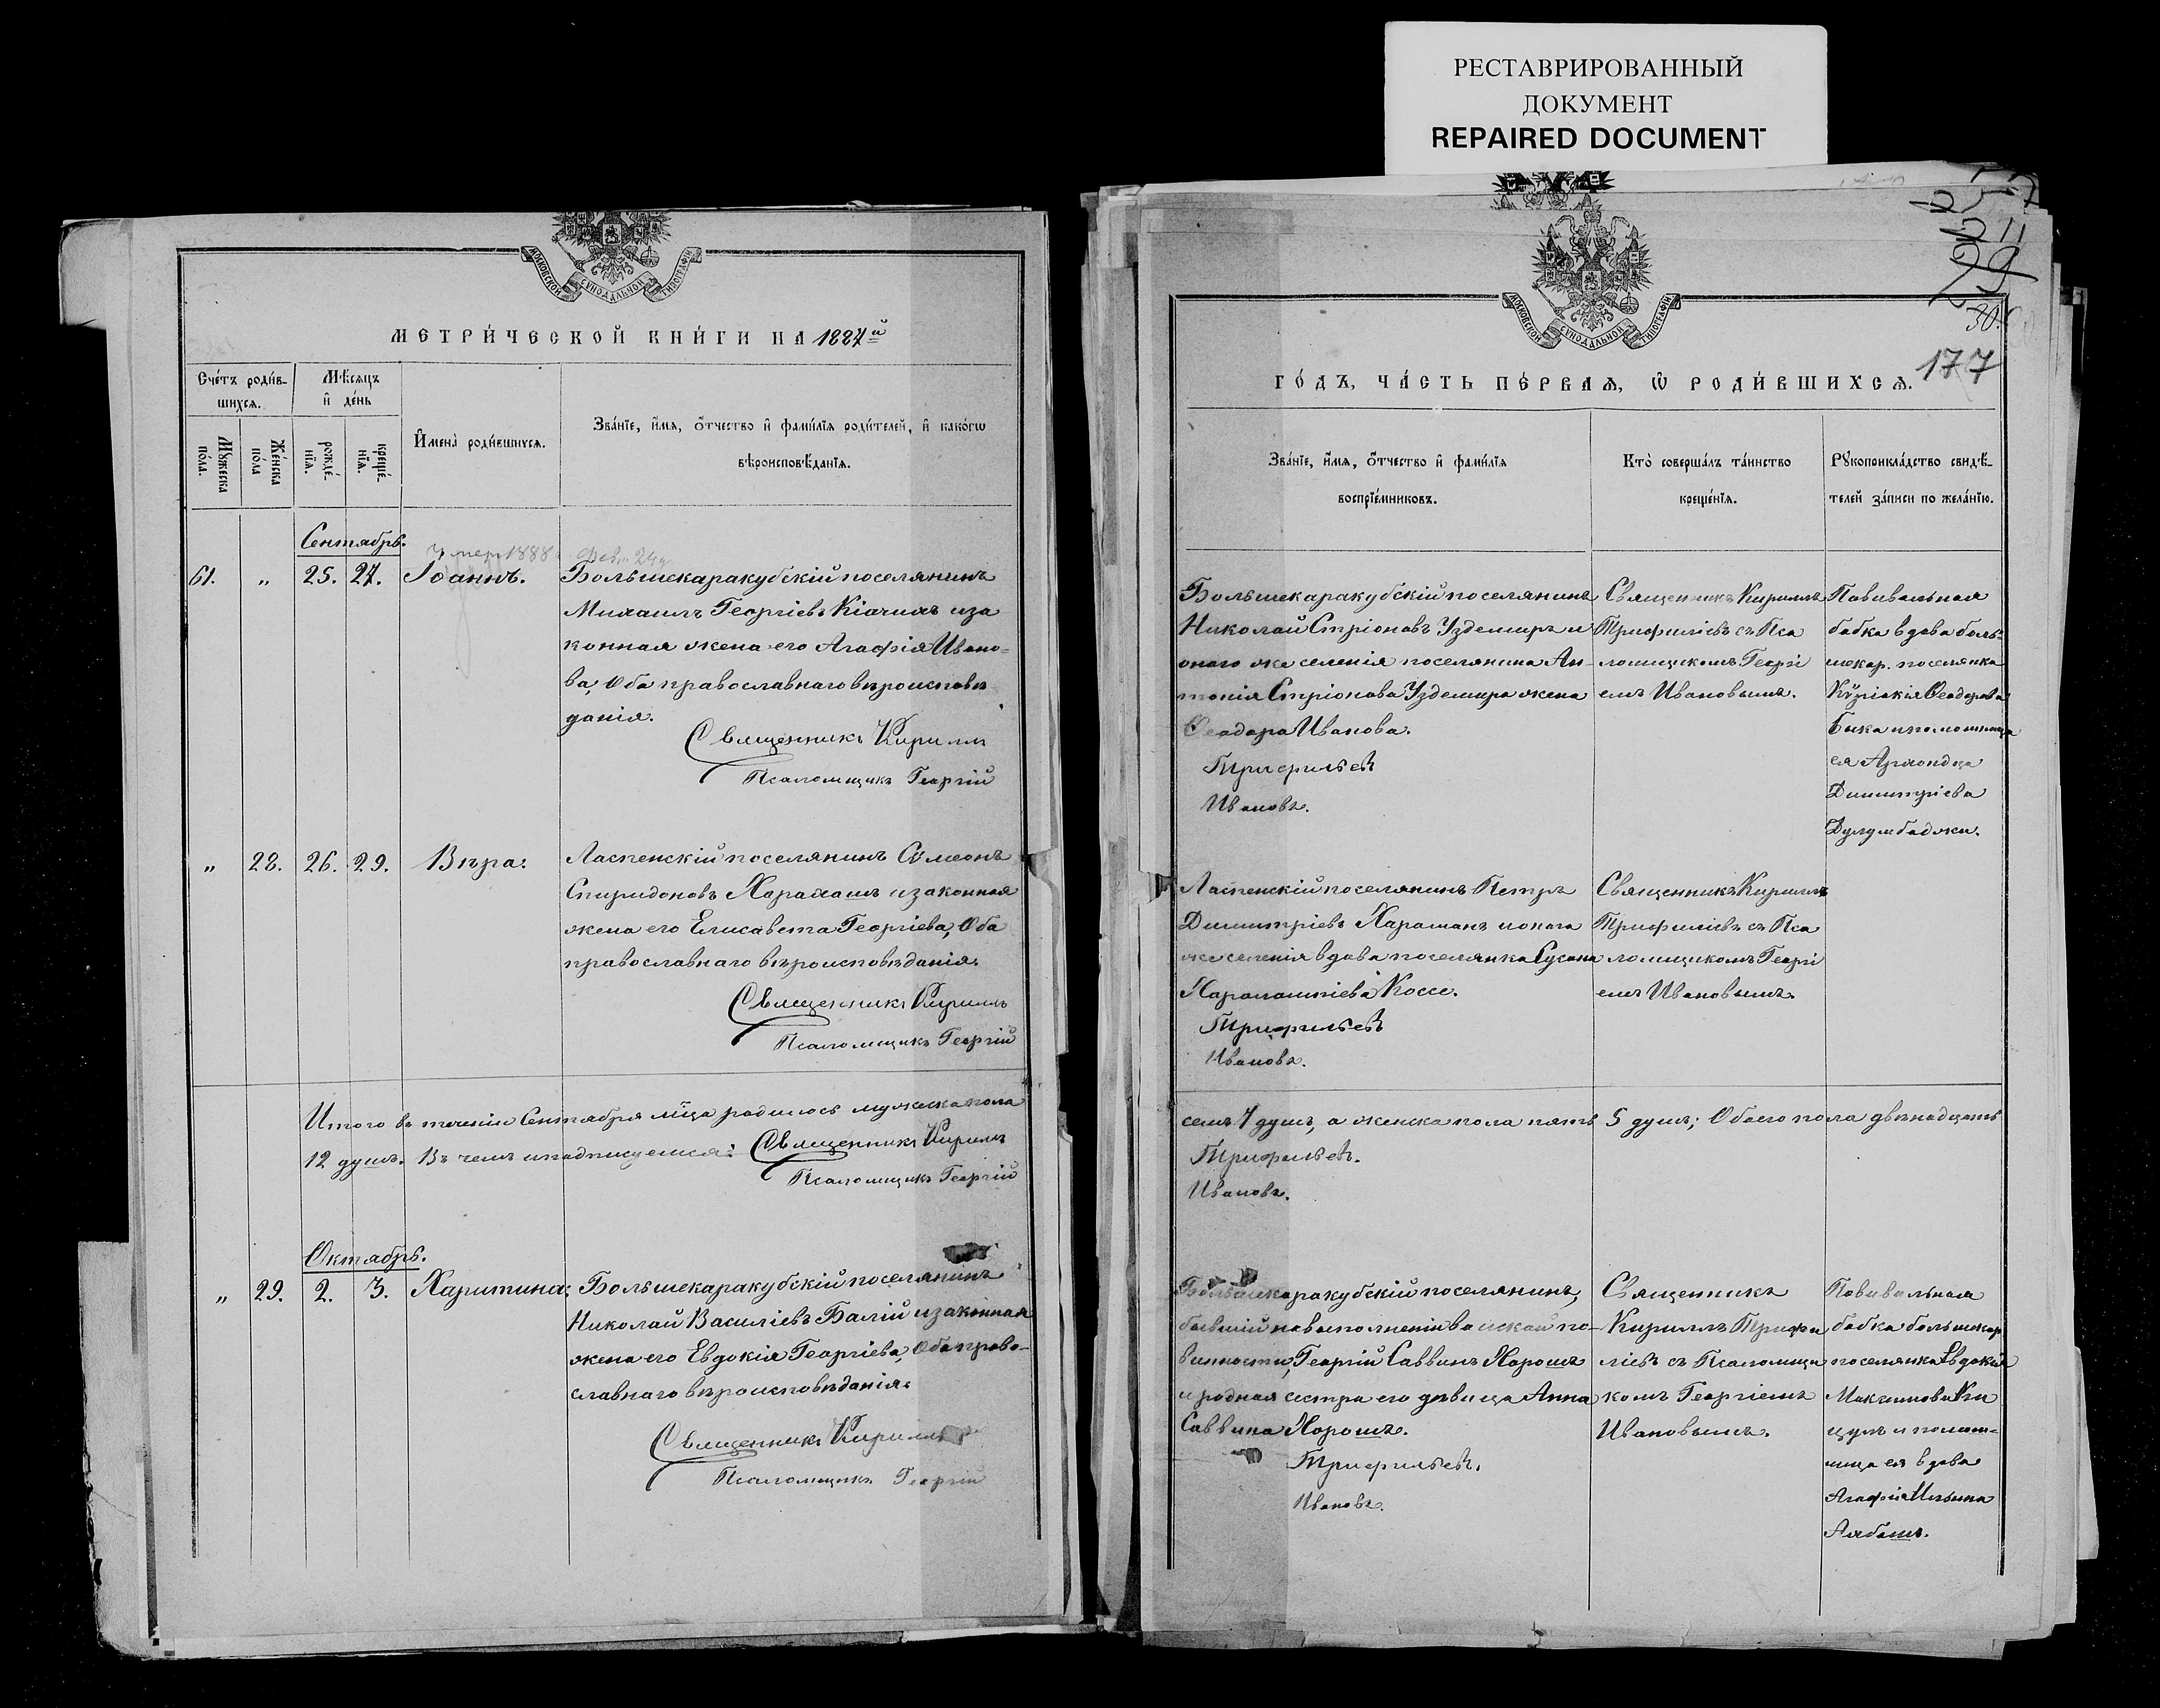 РЕСТАВРИРОВАННЫЙ
ДОКУМЕНТ
REPAIRED DOCUMENT
МОСКОВСКОЙ СѴНОДАЛЬНОЙ ТИПОГРАФІИ
МЕТРИ́ЧЕСКОЙ КНИ́ГИ НА 1887й
Сче́тъ роди́в-
шихсѧ.
Мѣ́сѧцъ
и҆ де́нь
Мꙋ́жеска
по́ла.
Же́нска
по́ла
рожде́-
нїѧ.
креще́-
нїѧ.
И҆мена̀ роди́вшихсѧ.
Зва́нїе, и҆́мѧ, ѻ҆́тчество и҆ фами́лїѧ роди́телей, и҆ како́гѡ
вѣроисповѣ́данїѧ.
Сентябрь.
Умер 1888 Фев. 24
61. „ 25. 27. Іоаннъ. Большекаракубскій поселянинъ
Михаилъ Георгіевъ Кіачихъ и за
конная жена его Агафія Ивано-
ва, Оба православнаго вѣроисповѣ
данія.
Священникъ Кириллъ
Псаломщикъ Георгій
„ 28. 26. 29. Вѣра: Ласпенскій поселянинъ Сѵмеонъ
Спиридоновъ Харахашъ и законная
жена его Елисавета Георгіева, Оба
православнаго вѣроисповѣданія.
Священникъ Кириллъ
Псаломщикъ Георгій
Итого въ теченіи Сентября мѣца родилось мужеска пола
12 душъ. Въ чемъ и подписуемся: Священникъ Кириллъ
Псаломщикъ Георгій
Октябрь.
„ 29. 2. 3. Харитина: Большекаракубскій поселянинъ
Николай Василіевъ Балій и законная
жена его Евдокія Георгіева, Оба право-
славнаго вѣроисповѣданія:
Священникъ Кириллъ
Псаломщикъ Георгій
МОСКОВСКОЙ СѴНОДАЛЬНОЙ ТИПОГРАФІИ
30.
177
ГО́ДЪ, ЧА́СТЬ ПЕ́РВАѦ, Ѡ҆ РОДИ́ВШИХСѦ.
Зва́нїе, и҆́мѧ, ѻ҆́тчество и҆ фами́лїѧ
воспрїе́мниковъ.
Кто̀ соверша́лъ та́инство
креще́нїѧ.
Рꙋкоприкла́дство свидѣ́-
телей за́писи по жела́нїю.
Большекаракубскій поселянинъ
Николай Стріоновъ Уздемиръ и
онаго же селенія поселянина Ан-
тонія Стріонова Уздемира жена
Ѳеодора Иванова.
Трифильевъ
Ивановъ.
Священникъ Кириллъ
Трифиліевъ съ Пса
ломщикомъ Георгі
емъ Ивановымъ.
Повивальная
бабка вдова боль-
шекар. поселянка
Кѵріакія Ѳеодорова
Быка и помошница
ея
Димитріева
Дулумбаджи.
Ласпенскій поселянинъ Петръ
Димитріевъ Хараманъ и онаго
же селенія вдова поселянка Сусана
Харалампіева Коссе.
Трифильевъ
Ивановъ.
Священникъ Кириллъ
Трифиліевъ съ Пса
ломщикомъ Георгі
емъ Ивановымъ.
семь 7 душъ, а женска пола пять 5 душъ; Обоего пола двѣнадцать
Трифильевъ.
Ивановъ.
Большекаракубскій поселянинъ,
бывшій на выполненіи воинской по-
винности, Георгій Саввинъ Хорошъ
и родная сестра его дѣвица Анна
Саввина Хорошъ.
Трифильевъ.
Ивановъ.
Священникъ
Кириллъ Трифи
ліевъ съ Псаломщи
комъ Георгіемъ
Ивановымъ.
Повивальная
бабка большекар
поселянка Евдокія
Максимова Ки
цулъ и помош-
ница ея вдова
Агафія Ильина
Аябашъ.